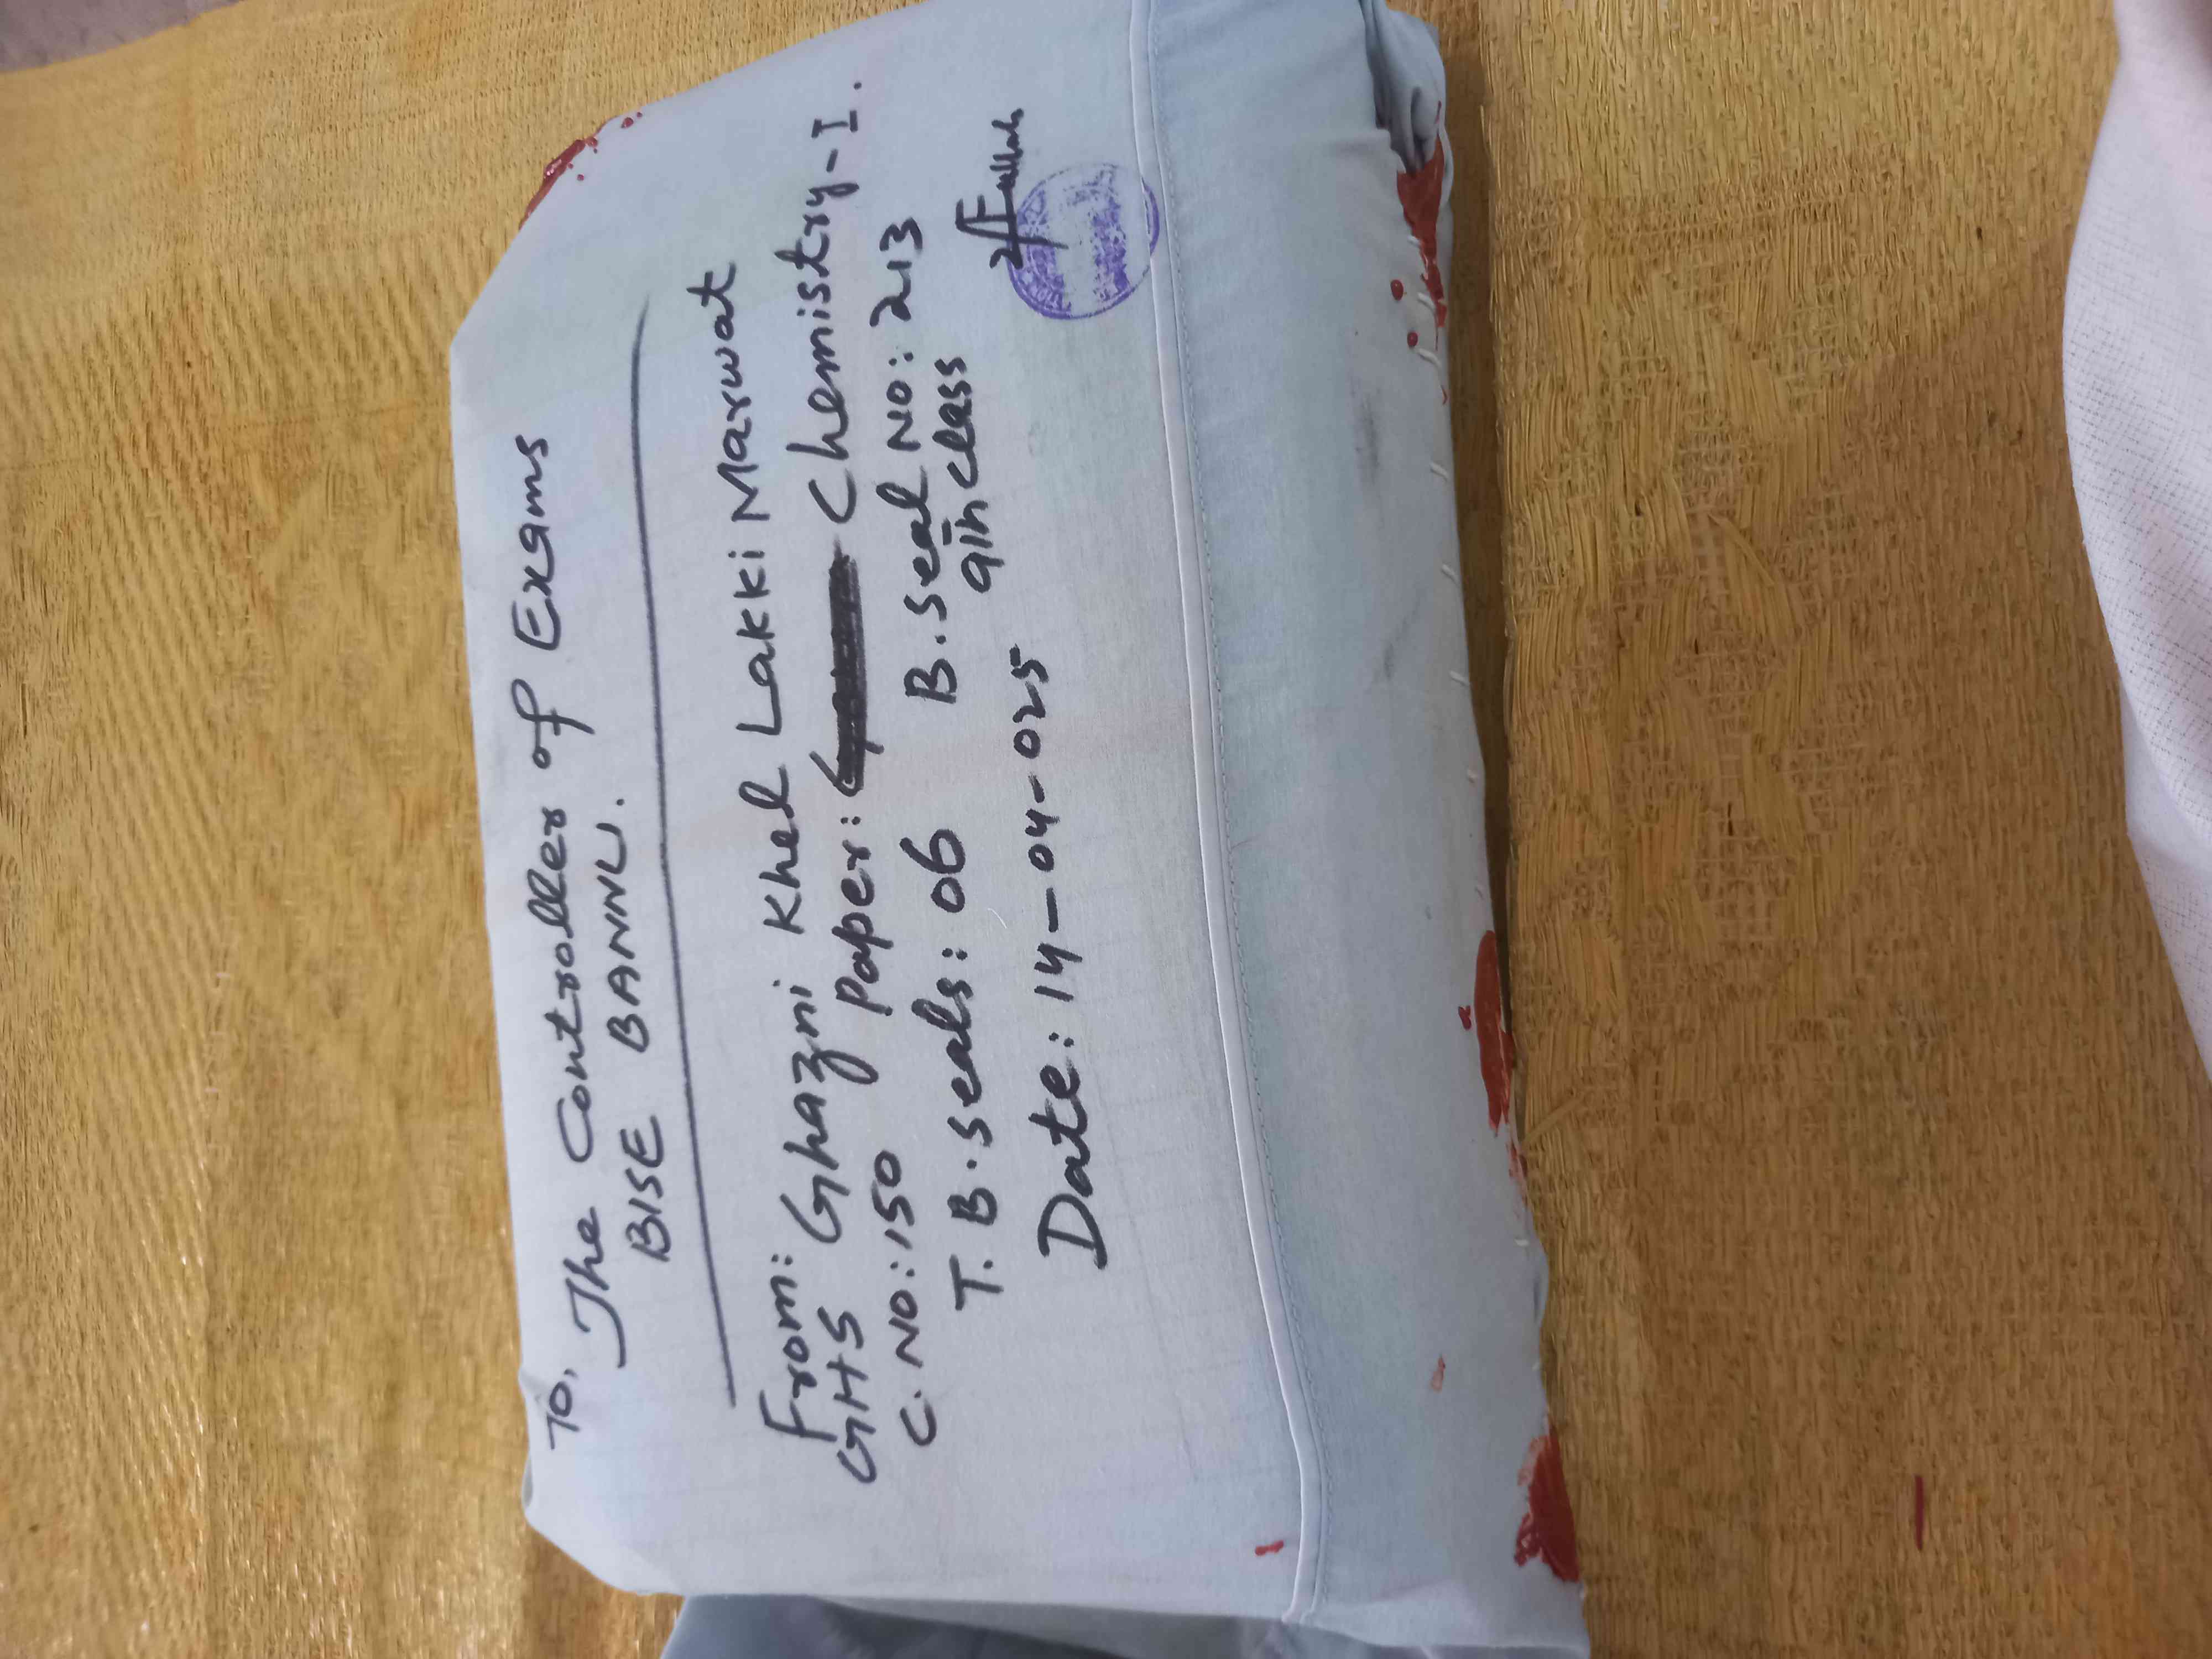 To,
The Controller of Exams
BISE BANNU.
From:
GHS Ghazni Khel Lakki Marwat
C.NO:150 Paper: Chemistry-I.
T.B.seals:06 B.seal NO:213
9th class
Date:14-04-025